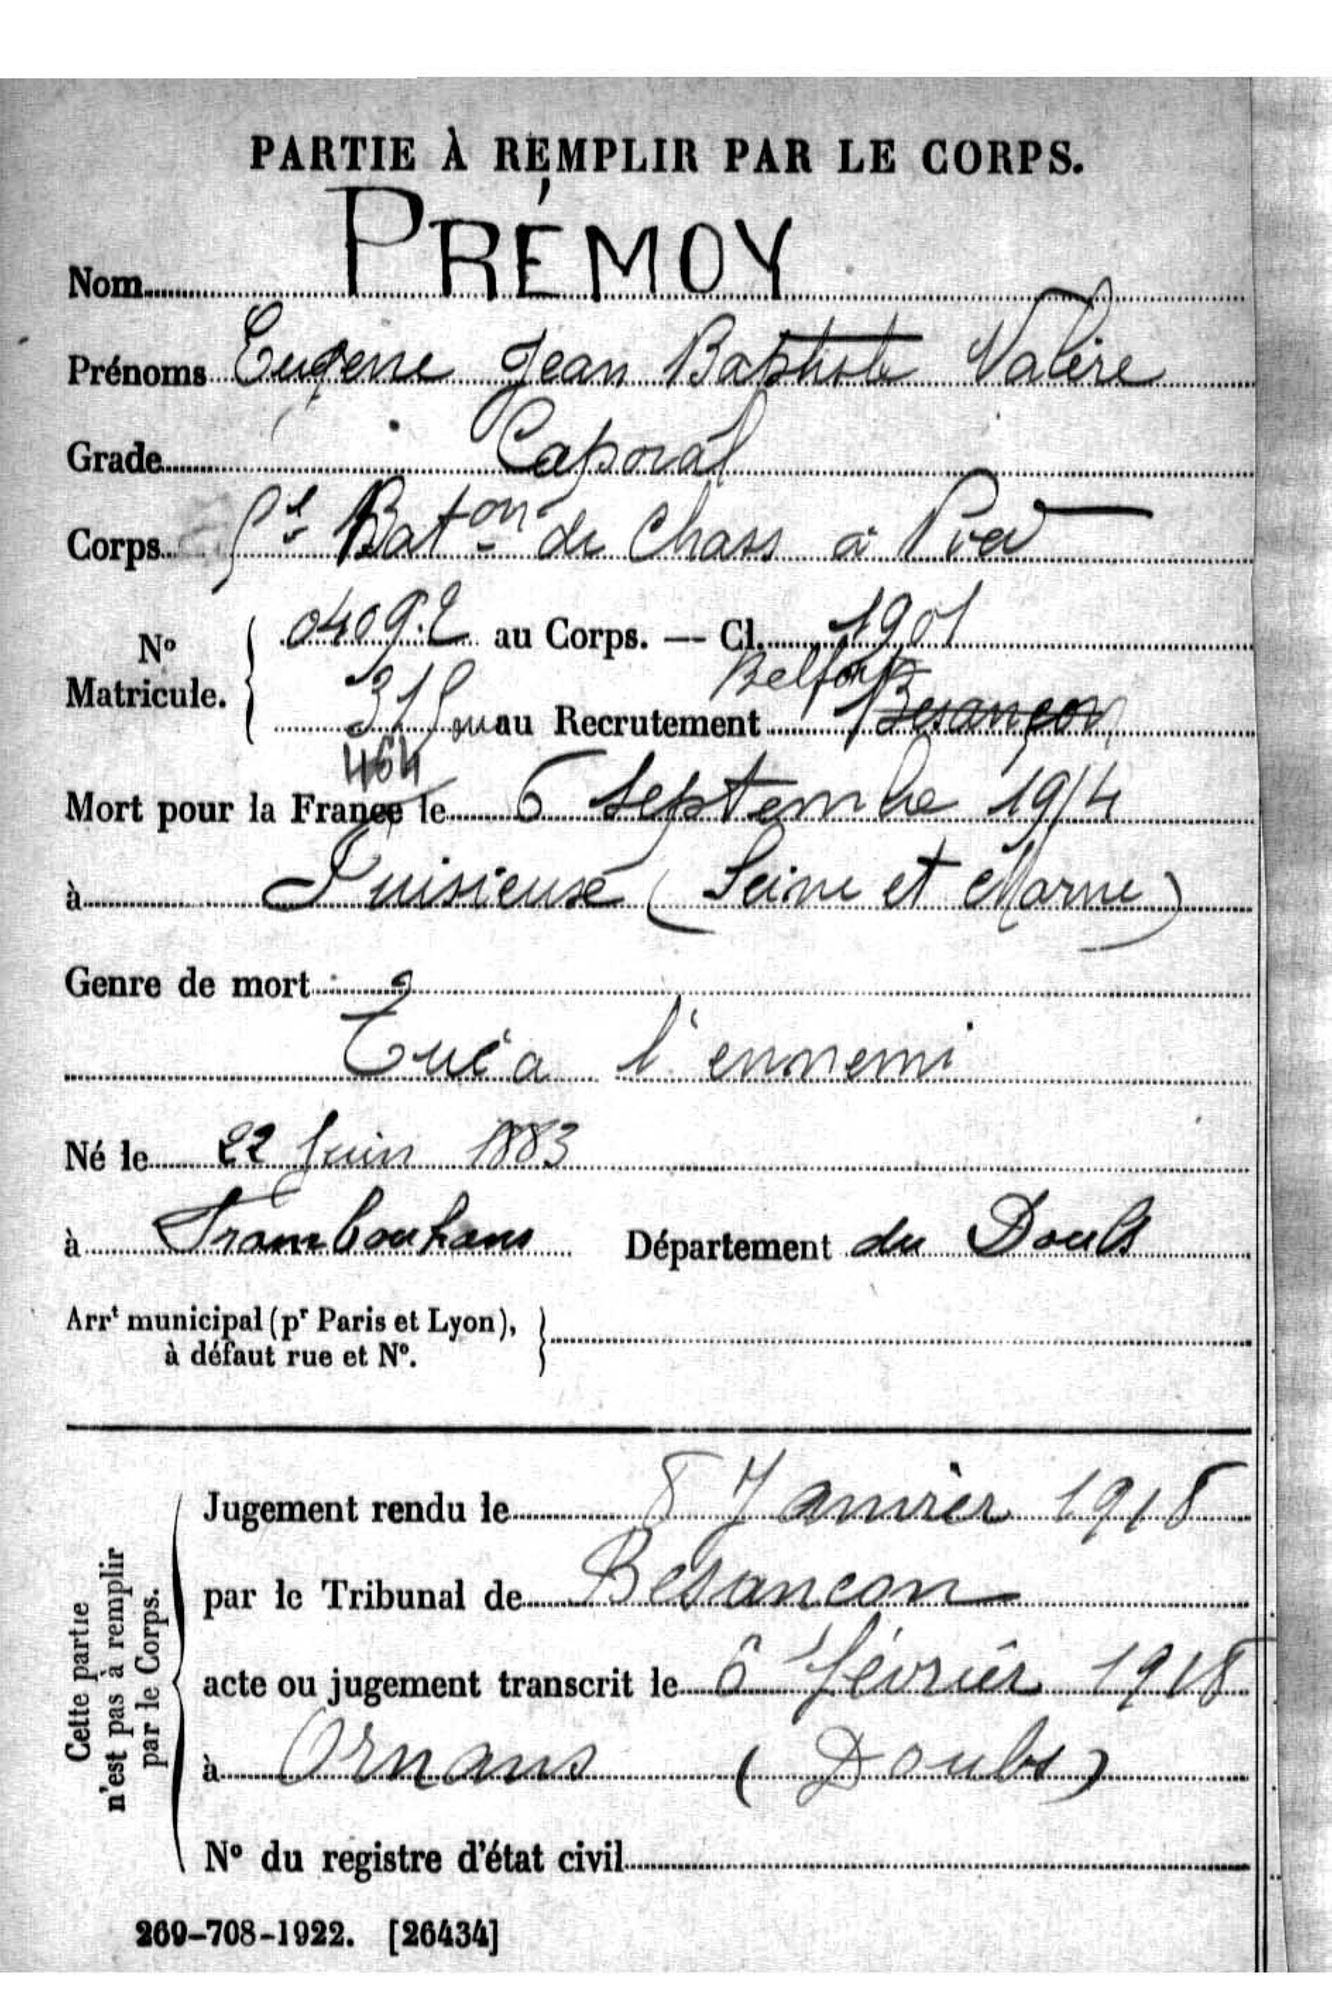 PARTIE À REMPLIR PAR LE CORPS.
Nom PRÉMOY
Prénoms Eugene Jean Baptiste Valère
Grade Caporal
Corps Bat.on de Chass à Pied
No Matricule. 0409.2 au Corps. — Cl. 1901
Belfort
au Recrutement Besançon
464
Mort pour la France le 6 Septembre 1914
à Puisieuse (Seine et Marne)
Genre de mort
Tué a l'ennemi
Né le 22 Juin 1883
à Trambouhans Département du Doubs
Arrt municipal (pr Paris et Lyon),
à défaut rue et No.
Cette partie
n'est pas à remplir
par le Corps.
Jugement rendu le 8 Janvier 1918
par le Tribunal de Besancon
acte ou jugement transcrit le 6 février 1918
à Ornans (Doubs)
No du registre d'état civil
269-708-1922. [26434]